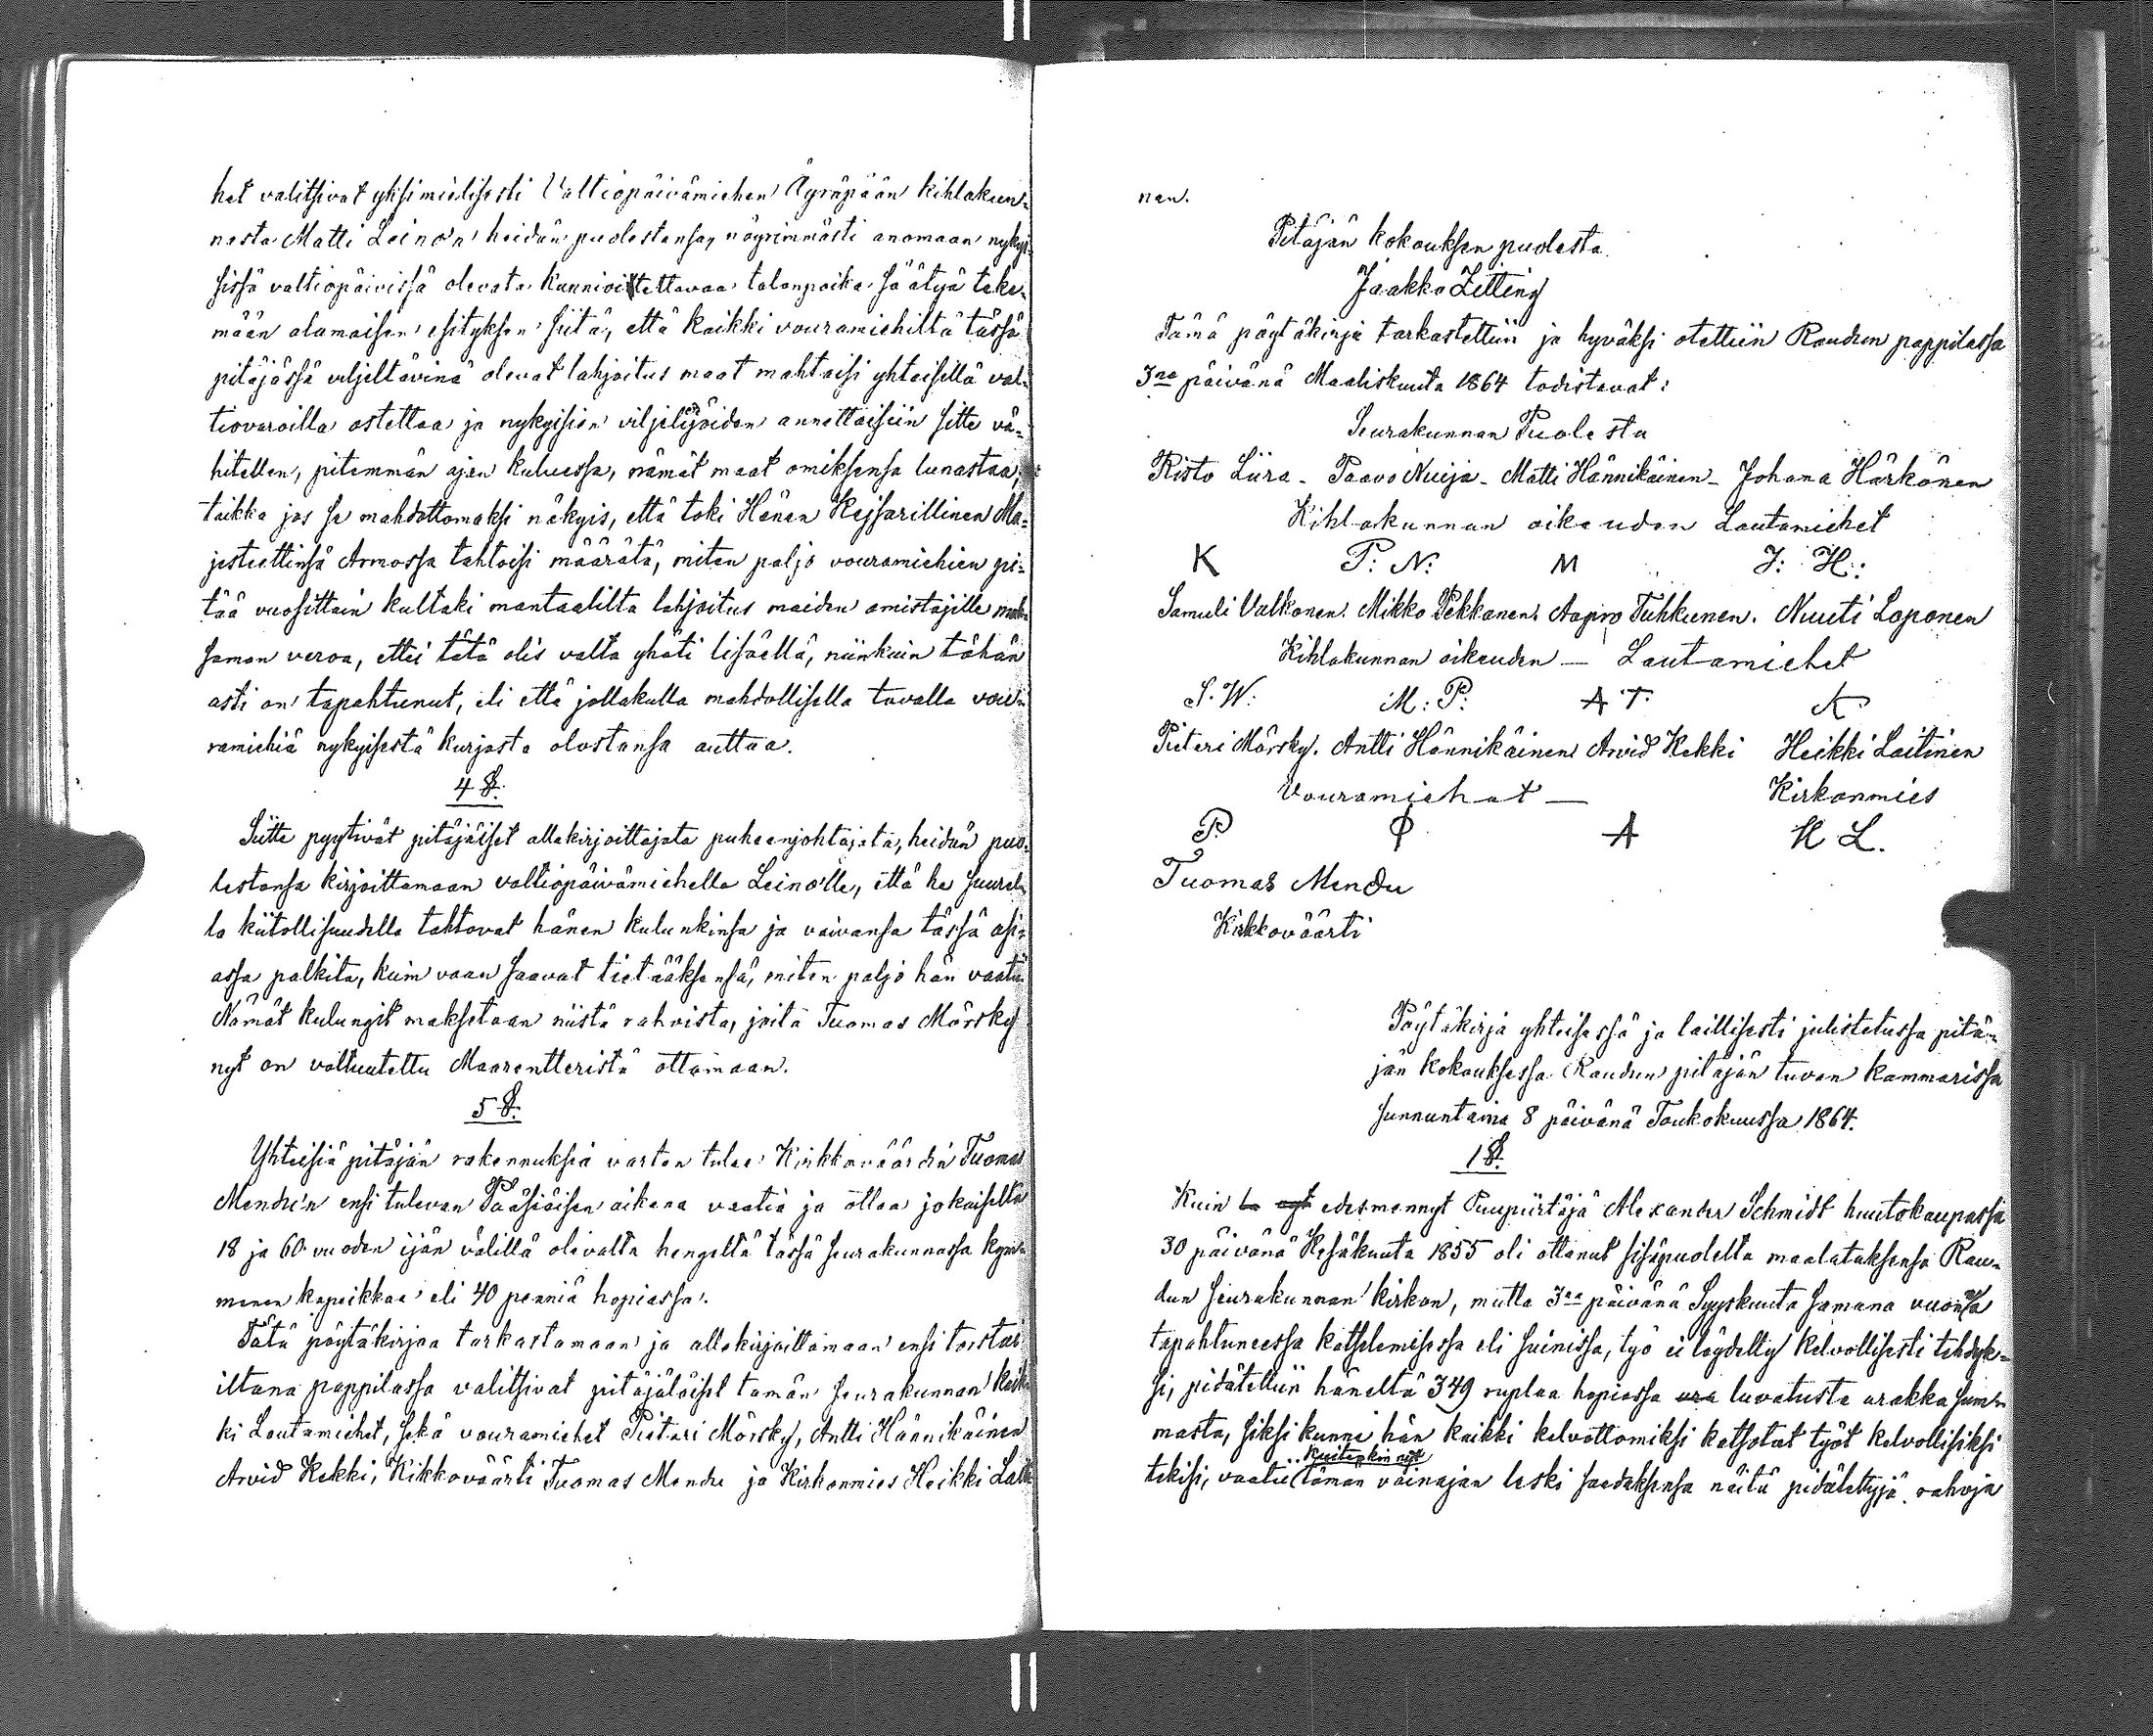 het valitsivat yksimielisesti Valtiopäivämiehen Äyräpään kihlakun-
nasta Matti Leino'n heidän puolestansa, nöyrimmästi anomaan nykyi-
sissä valtiopäivissä olevata kunnioitettavaa talonpoika säätyä teke-
mään alamaisen esityksen siitä, että kaikki vouramiehiltä tässä
pitäjässä viljeltävinä olevat lahjoitus maat mahtaisi yhteisillä val-
tiovaroilla ostettaa ja nykyisien viljeliöiden annettaisiin sitte vä-
hitellen, pitemmän ajan kuluessa, nämät maat omiksensa lunastaa;
taikka jos se mahdottomaksi näkyis, että toki Hänen Keisarillinen Ma-
jesteettinsä Armossa tahtoisi määrätä, miten paljo vouramiehien pi-
tää vuosittain kultaki mantaalilta lahjoitus maiden omistajille mak-
saman veroa, ettei tätä olis valta yhäti lisäellä, niinkuin tähän
asti on tapahtunut, eli että jollakulla mahdollisella tavalla vou-
ramiehiä nykyisestä kurjasta olostansa auttaa.
4 §.
Sitte pyytivät pitäjäiset allakirjoittajata puheenjohtajata, heidän puo-
lestansa kirjoittamaan valtiopäivämiehelle Leino'lle, että he suurel-
la kiitollisuudella tahtovat hänen kulunkinsa ja vaivansa tässä asi-
assa palkita, kuin vaan saavat tietääksensä, miten paljo hän vaatii
Nämät kulungit maksetaan niistä rahoista, joita Tuomas Mörsky
nyt on valtuutettu Maarentteristä ottamaan.
5 §.
Yhteisiä pitäjän rakennuksia varten tulee Kirkkoväärdin Tuomas
Mendu'n ensi tulevan Pääsiäisen aikana vaatia ja ottaa jokaiselta
18 ja 60 vuoden ijän välillä olevalta hengeltä tässä seurakunnassa kym-
menen kopeikkaa eli 40 penniä hopiassa.
Tätä pöytäkirjaa tarkastamaan ja allekirjoittamaan ensi torstai
iltana pappilassa valitsivat pitäjäläiset tämän seurakunnan kaik-
ki Lautamiehet, sekä vouramiehet Pietari Mörsky, Antti Hännikäinen
Arvid Kekki, Kikkoväärti Tuomas Mendu ja Kirkonmies Heikki Laiti-
nen.
Pitäjän kokouksen puolesta
Jaakko Zitting
Tämä pöytäkirja tarkastettiin ja hyväksi otettiin Raudun pappilassa
3na päivänä Maaliskuuta 1864 todistavat:
Seurakunnan Puolesta
Risto Liira - Paavo Nuija - Matti Hännikäinen - Johana Härkönen
Kihlakunnan oikeuden Lautamiehet
K P: N: M J: H:
Samuli Valkonen. Mikko Pekkanen. Aapro Tuhkunen. Nuuti Loponen
Kihlakunnan oikeuden — Lautamiehet
S. W: M: P: A T:
Pieteri Mörsky. Antti Hännikäinen Arvid Kekki Heikki Laitinen
Vouramiehet — Kirkonmies
P. A H L.
Tuomas Mendu
Kirkkoväärti
Pöytäkirja yhteisessä ja laillisesti julistetussa pitä-
jän kokouksessa Raudun pitäjän tuvan kammarissa
sunnuntaina 8 päivänä Toukokuussa 1864.
1 §.
Kuin edesmennyt Puupiirtäjä Alexander Schmidt huutokaupassa
30 päivänä Kesäkuuta 1855 oli ottanut sisäpuolelta maalataksensa Rau-
dun seurakunnan kirkon, mutta 3na päivänä Syyskuuta samana vuonna
tapahtuneessa katselemisessa eli suinissa, työ ei löydetty kelvollisesti tehdyk-
si, pidätettiin häneltä 349 ruplaa hopiassa ura luvatusta urakka sum-
masta, siksi kunne hän kaikki kelvottomiksi katsotut työt kelvollisiksi
kuitenkin nyt
tekisi, vaatii tämän vainajan leski saadaksensa näitä pidätettyjä rahoja